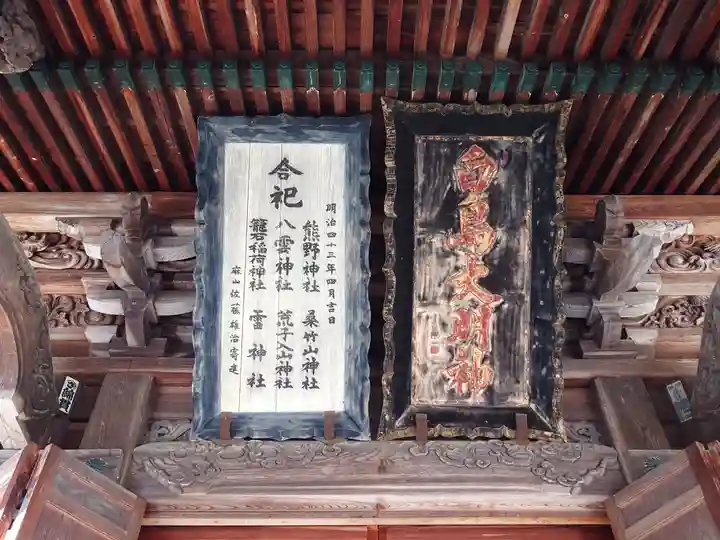 白鳥大明神
明治四十三年四月吉日
合祀
熊野神社 桑竹山神社
八雲神社 荒子入山神社
籠石稲荷神社 雷神社
麻山 佐藤雄治寄進